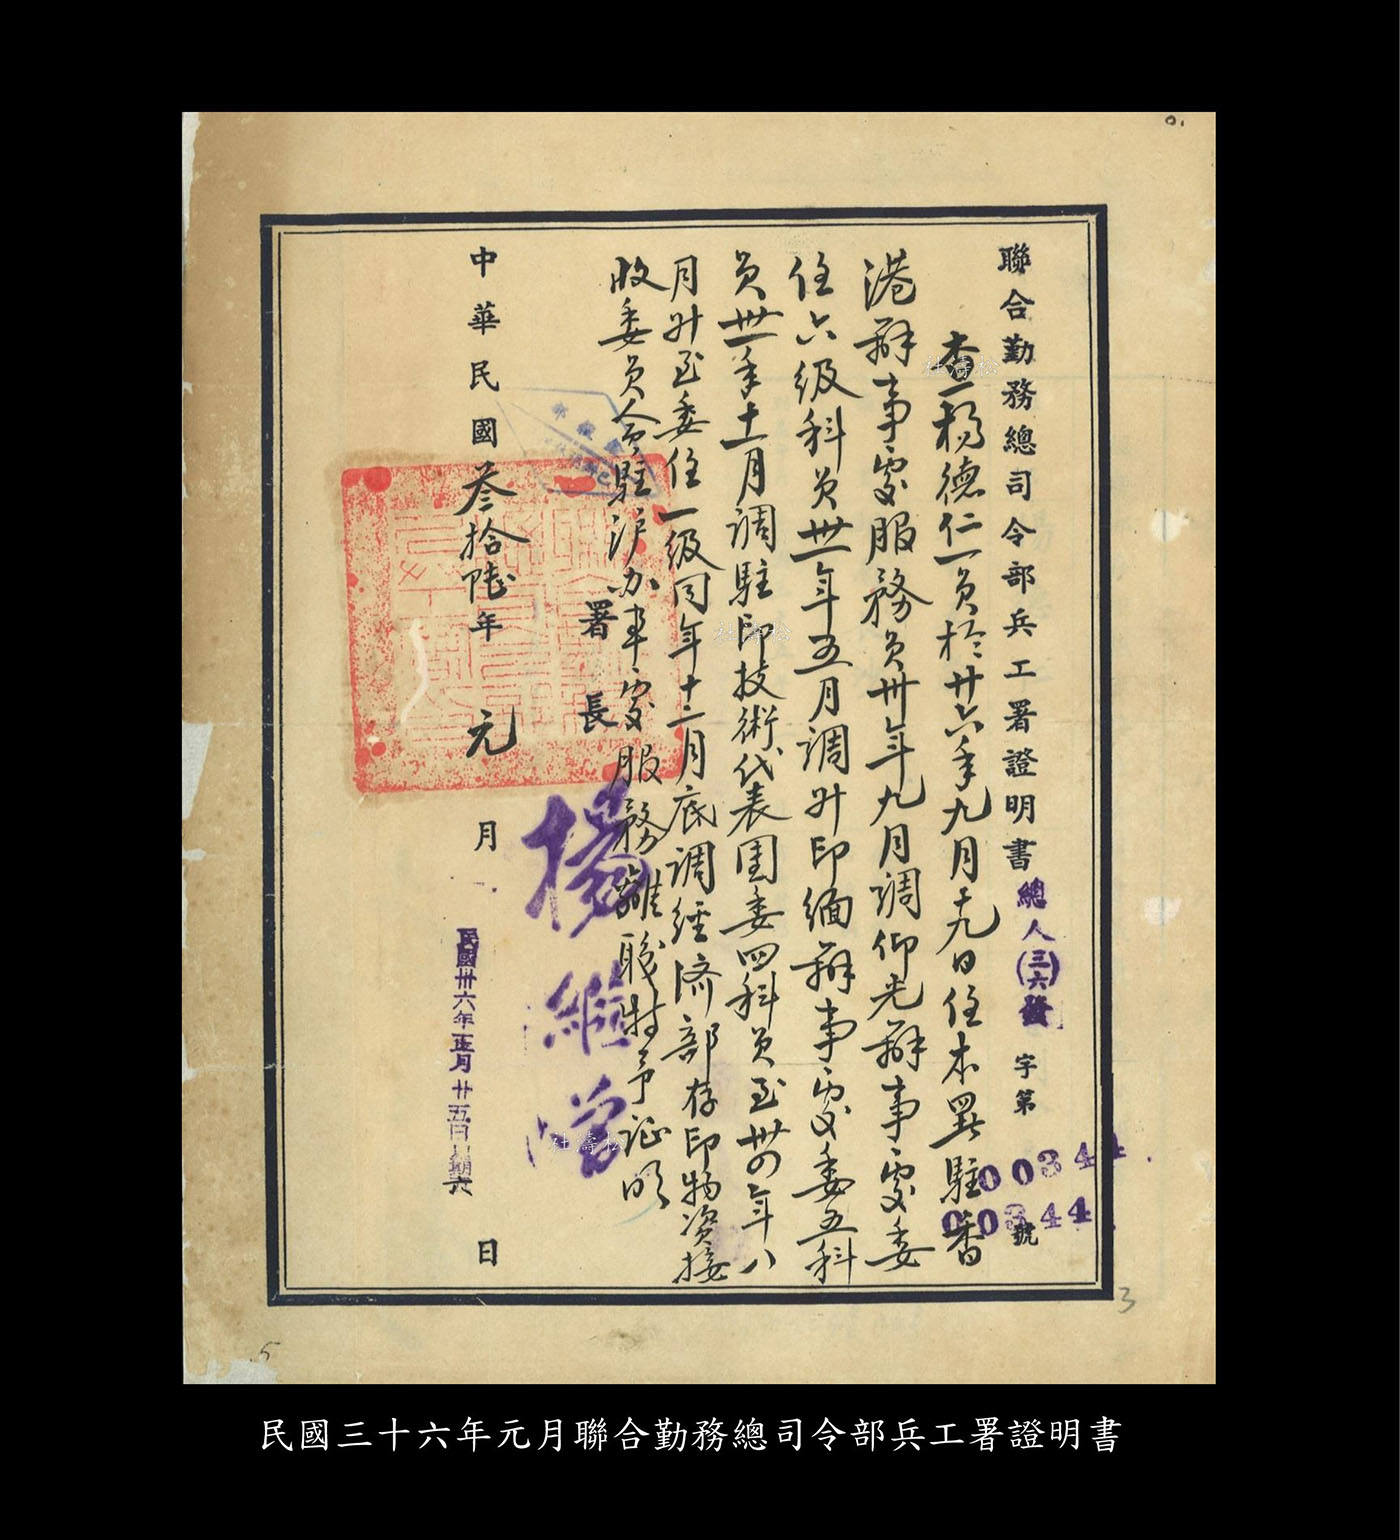 聯合勤務總司令部兵工署證明書 總人(三六)發 字第 00344 號
00344
查楊德仁一員於廿六年九月十九日任本署駐香
港辦事處服務員卅年九月調仰光辦事處委
任六級科員卅一年五月調升印緬辦事處委五科
員卅一年十一月調駐印技術代表團委四科員至卅四年八
月升至委任一級同年十二月底調經濟部存印物資接
收委員會駐沪办事處服務離職特予証明
署長 楊繼曾
中華民國叁拾陸年 元 月 日
民國卅六年正月廿五日星期六
杜濤松
杜濤松
杜濤松
3
5
民國三十六年元月聯合勤務總司令部兵工署證明書